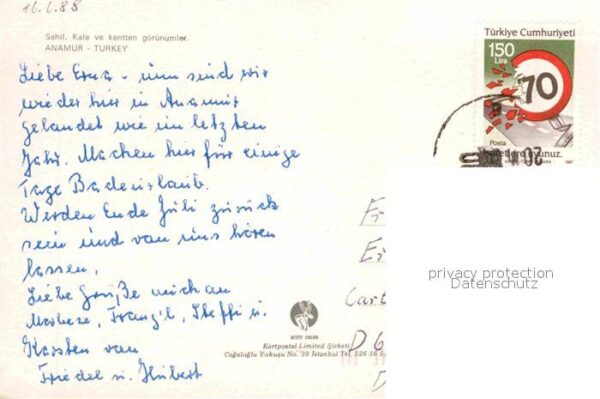 16.6.88
Sahil, Kale ve kentten görünümler.
ANAMUR - TURKEY
Liebe Erna - nun sind wir
wieder hier in Anamur
gelandet wie im letzten
Jahr. Machen hier für einige
Tage Badeurlaub.
Werden Ende Juli zurück
sein und von uns hören
lassen.
Liebe Grüße auch an
Steffi u.
Karsten von
Friedel u. Hubert
Türkiye Cumhuriyeti
150
Lira
70
Posta
uyunuz.
1987
privacy protection
Datenschutz
KESKIN COLOR
Kartpostal Limited Şirketi
Cağaloğlu Yokuşu No. 39 İstanbul Tel. 526 56
D 6